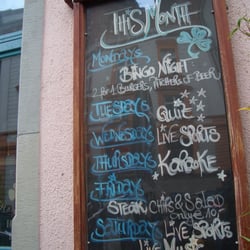 THIS MONTH
MONDAYS
BINGO NIGHT
2 for 1 BURGERS, PITCHERS OF BEER
TUESDAYS QUIZ
WEDNESDAYS LIVE SPORTS
THURSDAYS KARAOKE
FRIDAY
STEAK CHIPS & SALAD
only £ 10
SATURDAY LIVE SPORTS
LIVE MUSIC